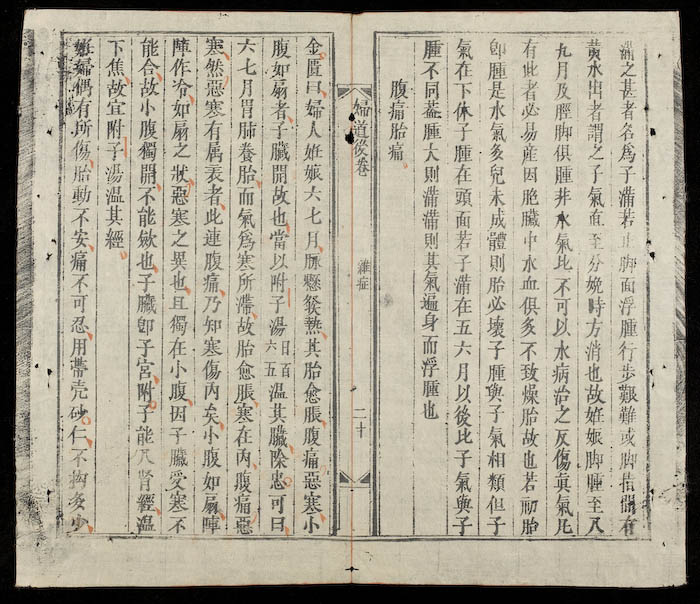 滿之甚者名爲子滿若止脚面浮腫行步艱難或脚指間有
黄水出者謂之子氣直至分娩時方消也故妊娠脚腫至八
九月及脛脚俱腫并水氣比不可以水病治之反傷眞氣凡
有此者必易産因胞臟中水血俱多不致燥胎故也若初胎
卽腫是水氣多兒未成體則胎必壞子腫與子氣相類但子
氣在下休子腫在頭面若子滿在五六月以後比子氣與子
腫不同蓋腫大則滿滿則其氣遍身而浮腫也
腹痛胎痛
婦道後卷
雜症
二十
金匱曰婦人妊娠六七月脉懸發熱其胎愈脹腹痛惡寒小
腹如扇者子臟開故也當以附子湯日百六五溫其臟除忠可曰
六七月胃肺養胎而氣爲寒所滯故胎愈脹寒在內腹痛惡
寒然惡寒有属表者此連腹痛乃知寒傷內矣小腹如扇陣
陣作冷如扇之狀惡寒之異也且獨在小腹因子臟受寒不
能合故小腹獨開不能歛也子臟卽子宮附子能入腎經溫
下焦故宜附子湯温其經
妊婦偶有所傷胎動不安痛不可忍用帶壳砂仁不拘多少